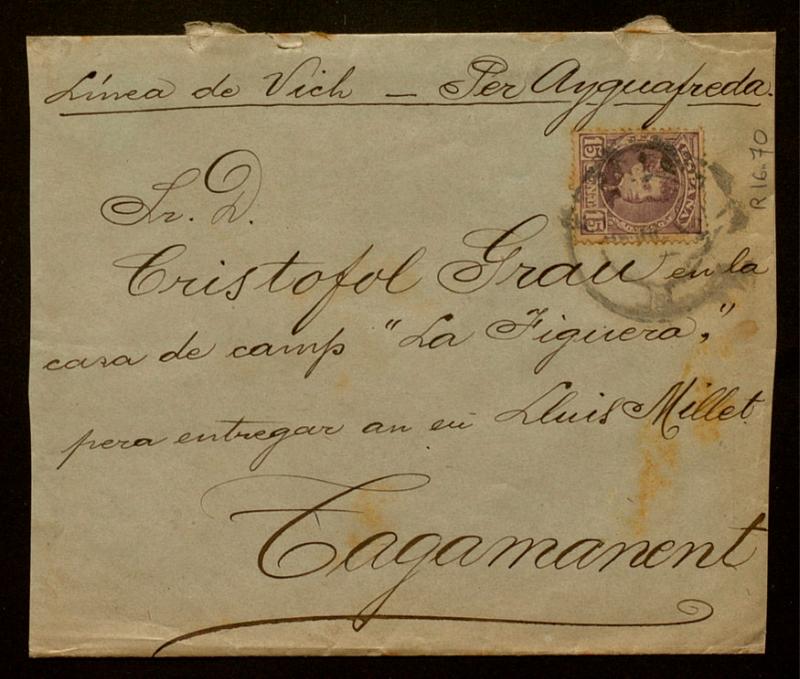 Línea de Vich — Per Ayguafreda.
Sr. D.
Cristofol Grau en la
casa de camp "La Figuera,"
pera entregar an en Lluis Millet.
Tagamanent
ESPAÑA
15 15
R 16.70